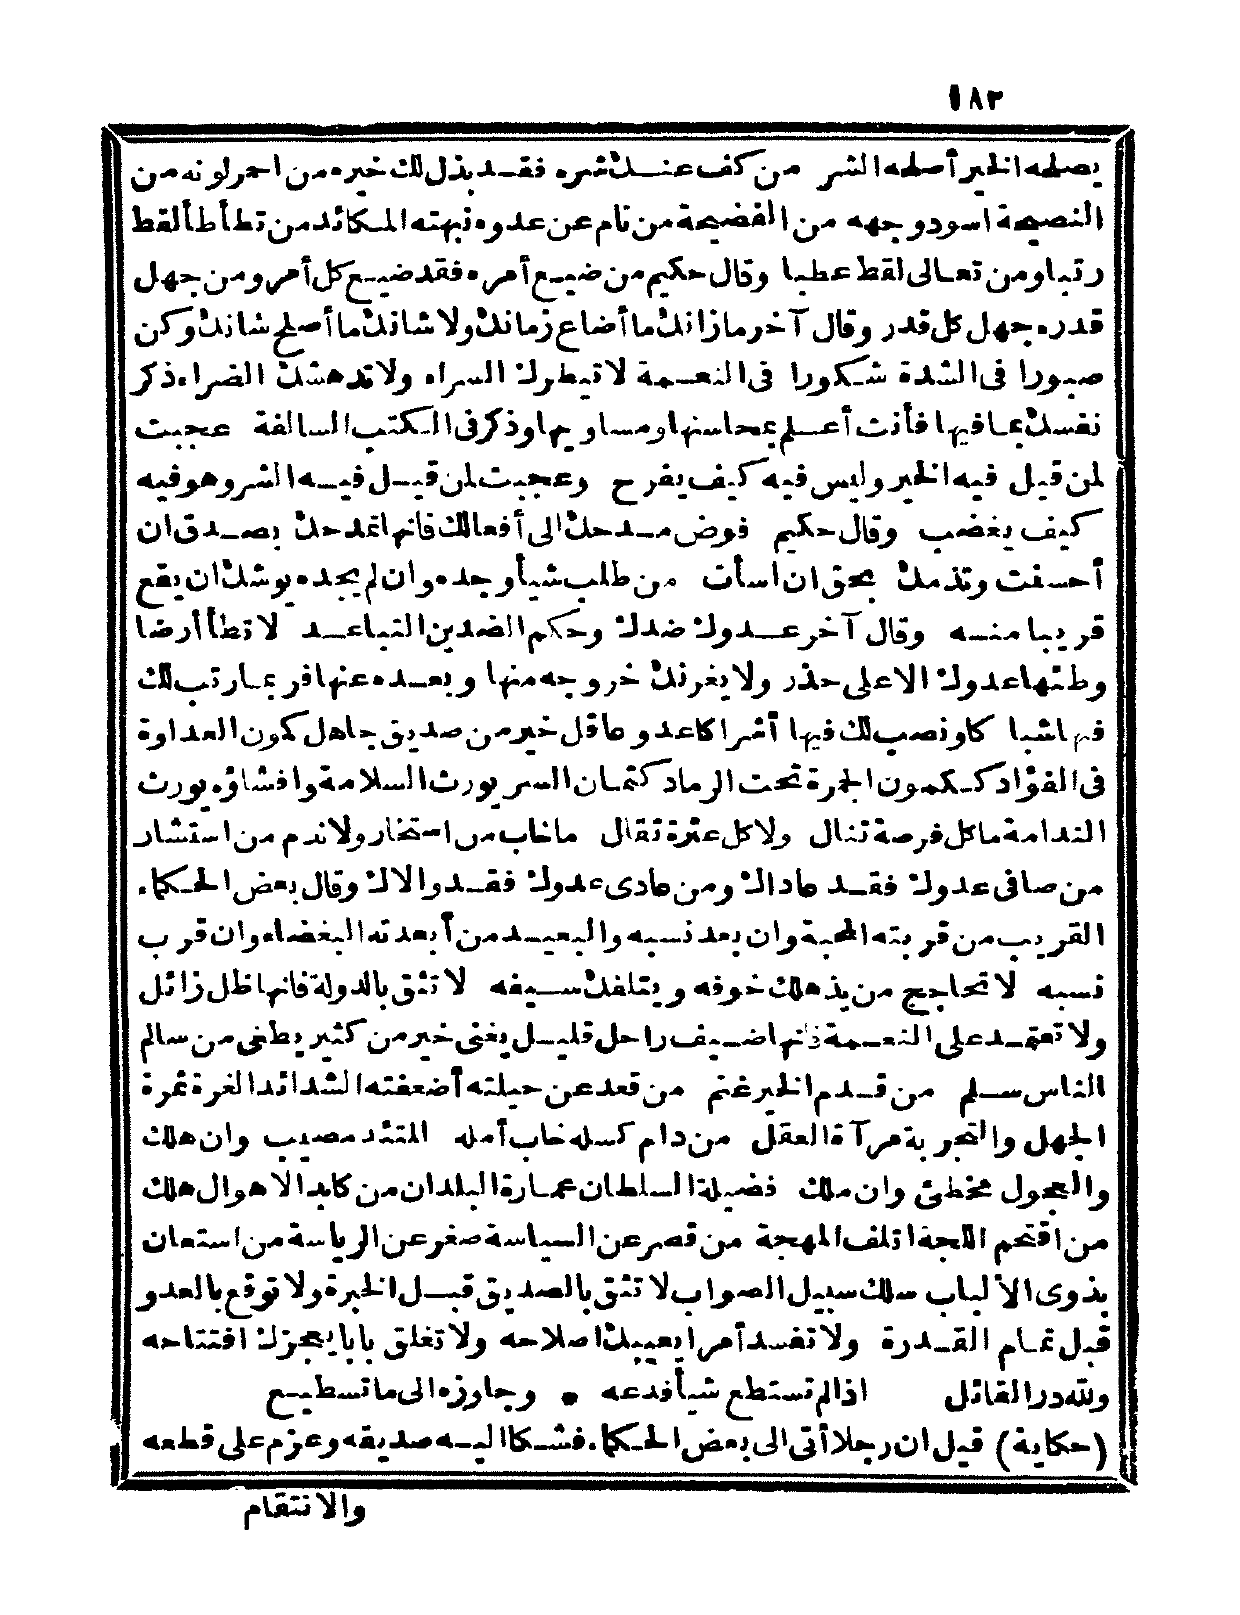 ١٨٢
يصلحه الخير أصلحه الشر من كف عنك شره فقد بذل لك خيره من احمر لونه من
النصيحة اسود وجهه من الفضيحة من نام عن عدوه نبهته المكائد من تطأطأ لقط
رتبا ومن تعالى لقط عطبا وقال حكيم من ضيع أمره فقد ضيع كل أمر ومن جهل
قدره جهل كل قدر وقال آخر ما زانك ما أضاع زمانك ولا شانك ما أصلح شانك وكن
صبورا فى الشدة شكورا فى النعمة لا تبطرك السراء ولا تدهشك الضراء ذكر
نفسك بما فيها فأنت أعلم بمحاسنها ومساويها وذكر فى الكتب السالفة عجبت
لمن قيل فيه الخير وليس فيه كيف يفرح وعجبت لمن قيل فيه الشر وهو فيه
كيف يغضب وقال حكيم فوض مدحك الى أفعالك فانها تمدحك بصدق ان
أحسنت وتذمك بحق ان اسأت من طلب شيأ وجده وان لم يجده يوشك ان يقع
قريبا منه وقال آخر عدوك ضدك وحكم الضدين التباعد لا تطأ أرضا
وطئها عدوك الاعلى حذر ولا يغرنك خروجه منها وبعده عنها فربما رتب لك
فيها شبا كا ونصب لك فيها أشرا كا عدو عاقل خير من صديق جاهل كمون العداوة
فى الفؤاد ككمون الجمرة تحت الرماد كتمان السر يورث السلامة وافشاؤه يورث
الندامة ما كل فرصة تنال ولا كل عثرة تقال ما خاب من استخار ولا ندم من استشار
من صافى عدوك فقد عاداك ومن عادى عدوك فقد والاك وقال بعض الحكماء
القريب من قربته المحبة وان بعد نسبه والبعيد من أبعدته البغضاء وان قرب
نسبه لا تحاجج من يذهلك خوفه ويتلفك سيفه لا تثق بالدولة فانها ظل زائل
ولا تعتمد على النعمة فانها ضيف راحل قليل يغنى خير من كثير يطغى من سالم
الناس سلم من قدم الخير غنم من قعد عن حيلته أضعفته الشدائد الغرة ثمرة
الجهل والتجربة مرآة العقل من دام كسله خاب أمله المتئد مصيب وان هلك
والعجول مخطئ وان ملك فضيلة السلطان عمارة البلدان من كابد الاهوال هلك
من اقتحم اللجة اتلف المهجة من قصر عن السياسة صغر عن الرياسة من استعان
بذوى الألباب سلك سبيل الصواب لا تثق بالصديق قبل الخبرة ولا توقع بالعدو
قبل تمام القدرة ولا تفسد أمرا يعييك اصلاحه ولا تغلق بابا يعجزك افتتاحه
ولله در القائل اذا لم تستطع شيأ فدعه • وجاوزه الى ما تسطيع
(حكاية) قيل ان رجلا أتى الى بعض الحكماء فشكا اليه صديقه وعزم على قطعه
والانتقام